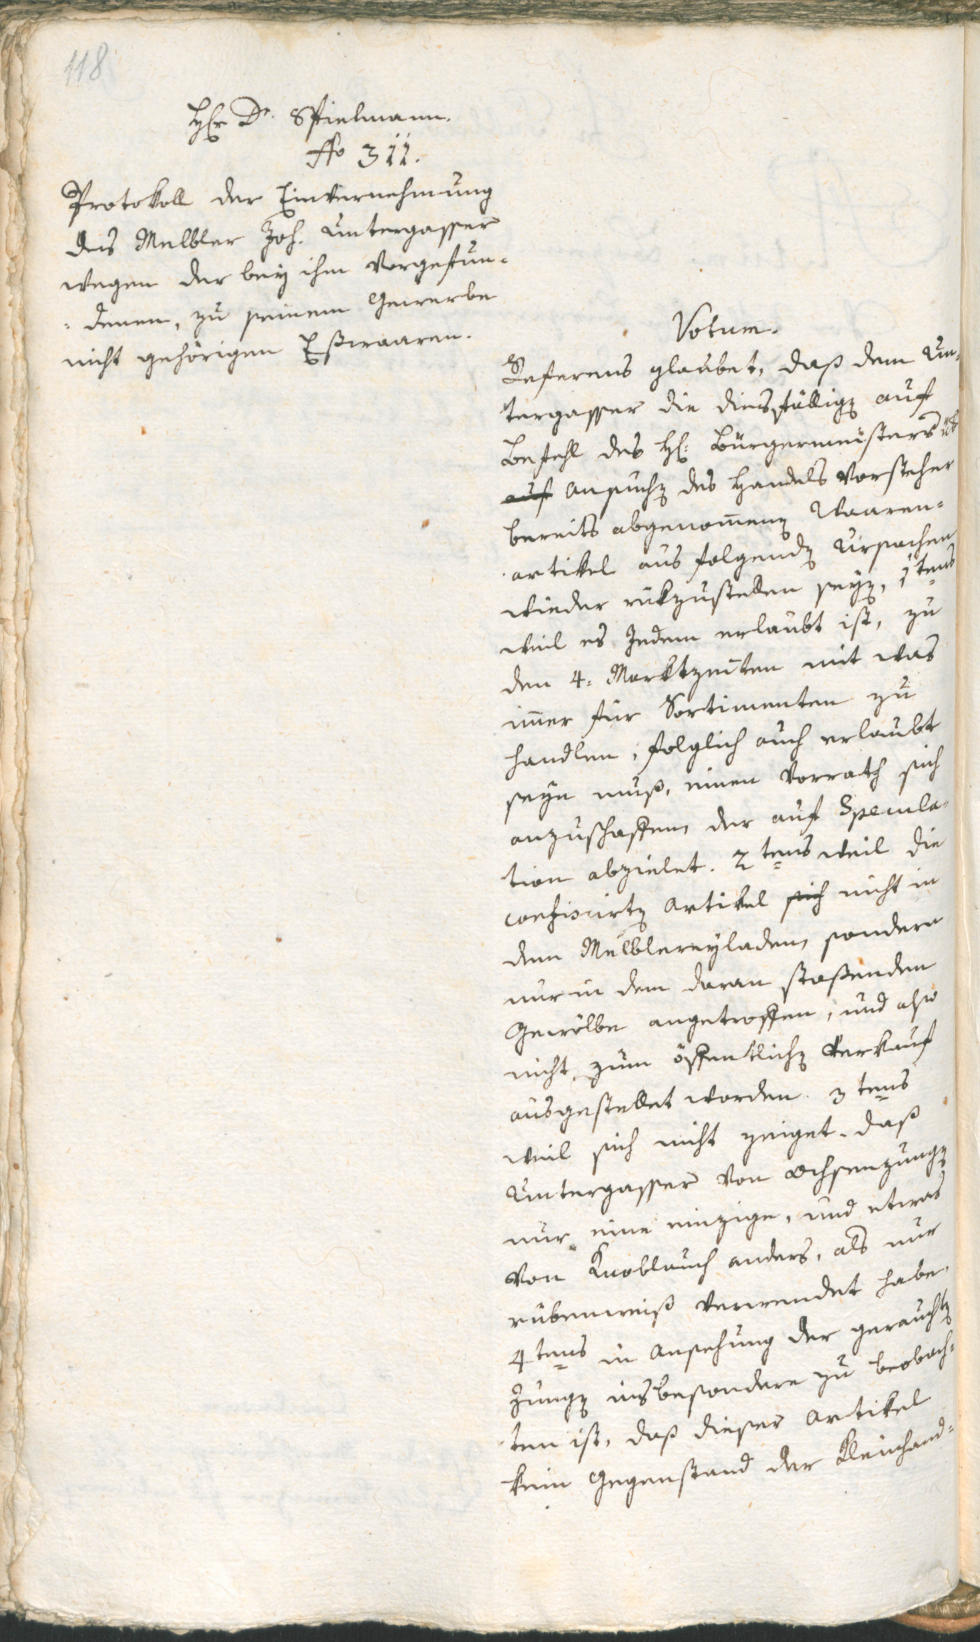 118
H Dr. Spielmann.
No 311.
Protokoll der Einvernehmung
des Melbler Joh. Untergasser
wegen der bey ihm vorgefun-
denen, zu seinem Gewerbe
nicht gehörigen Eßwaaren.
Votum.
Referens glaubet, daß dem Un-
tergasser die diesfällig auf
Befehl des H: Bürgermeisters üb
auf Ansuch des Handels Vorsteher
bereits abgenomene Waaren-
artikel aus folgend Ursachen
wieder rükzustellen sey, 1tens
weil es Jedem erlaubt ist, zu
den 4. Marktzeiten mit was
imer für Sortimenten zu
handlen, folglich auch erlaubt
seyn muß, einen Vorrath sich
anzuschaffen, der auf Specula-
tion abzielet. 2tens weil die
confiscirte Artikel sich nicht in
dem Melblereyladen, sondern
nur in dem daran stoßenden
Gewölbe angetroffen, und also
nicht zum öffentlich Verkauf
ausgestellet worden. 3tens
weil sich nicht zeiget, daß
Untergasser von Ochsenzung
nur eine einzige, und etwas
von Knoblauch anders, als nur
rübenweiß verwendet habe.
4tens in Ansehung der geraucht
Zung insbesondere zu beobach-
ten ist, daß dieser Artikel
kein Gegenstand der Kleinhand-